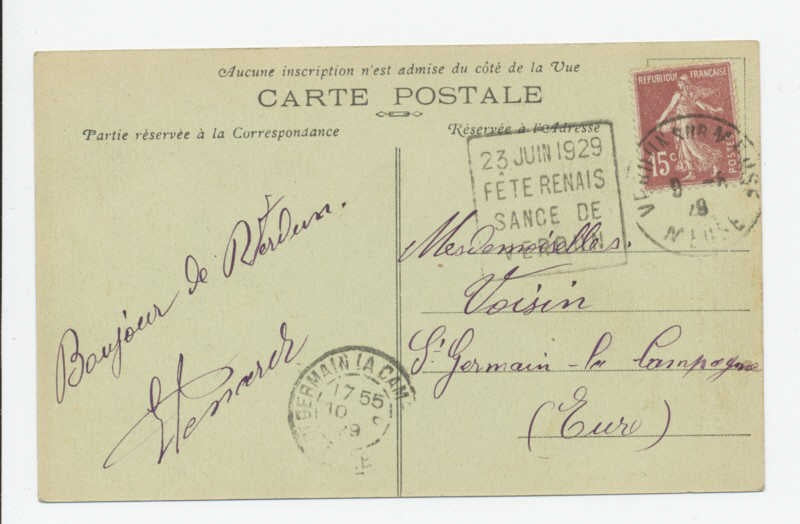 Aucune inscription n'est admise du côté de la Vue
CARTE POSTALE
Partie réservée à la Correspondance
Réservée à l'Adresse
REPUBLIQUE FRANÇAISE
15c
POSTES
23 JUIN 1929
FÊTE RENAIS
SANCE DE
VERDUN
VERDUN SUR MEUSE
MEUSE
Bonjour de Verdun.
Mesdemoiselles.
Voisin
St Germain-la Campagne
(Eure)
GERMAIN LA CAM
17 55
10